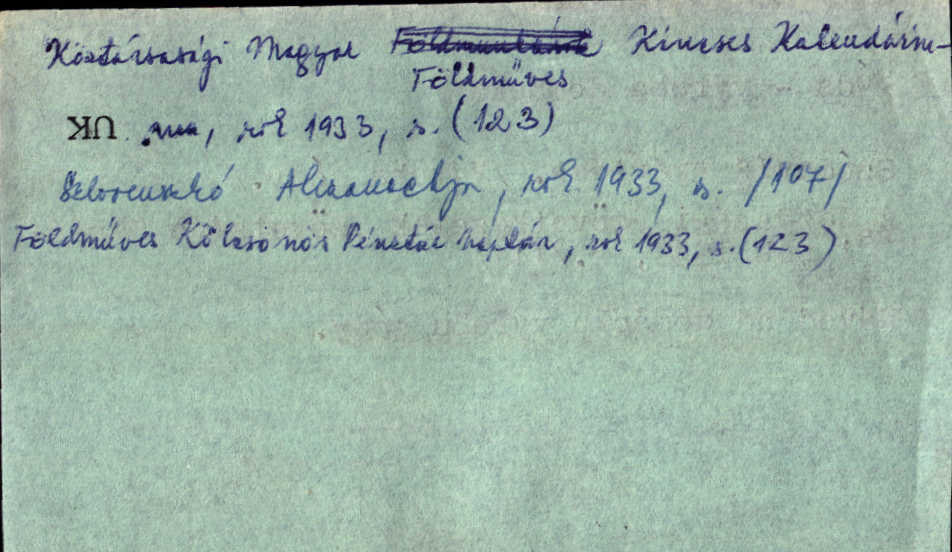 Köztársasági Magyar Földmunkások Kincses Kalendáriu-
Földműves
UK ma, rok 1933, s. (123)
Szlovenszkó Almanachja, rok 1933, s. /107/
Földműves Kölcsönös Pénztár Naptár, rok 1933, s. (123)